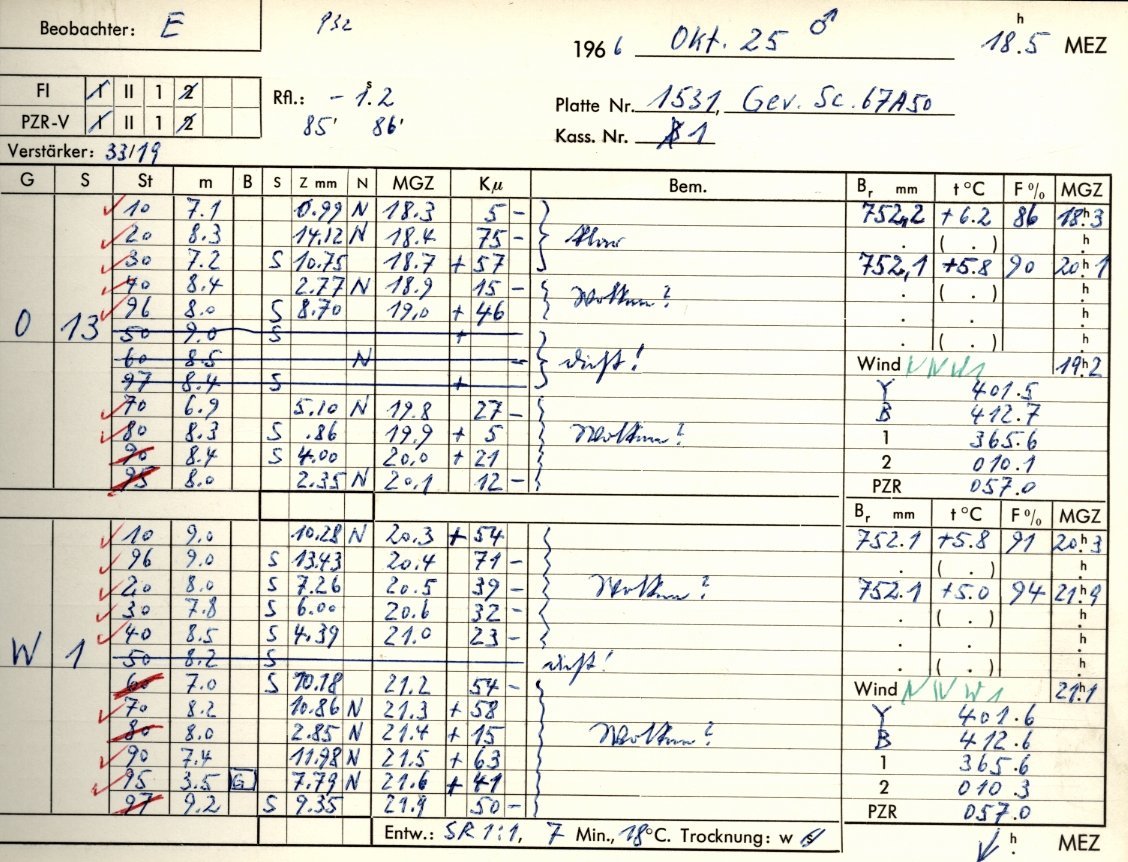 Beobachter: E P32 196 6 Okt. 25 ♂ 18.5 h MEZ
FI I II 1 2
Rfl.: - 1.2 s
Platte Nr. 1531, Gev. Sc. 67A50
PZR-V I II 1 2
85' 86'
Kass. Nr. 1
Verstärker: 33/19
G S St m B S Z mm N MGZ Kμ Bem. Br mm t °C F % MGZ
10 7.1 0.99 N 18.3 5 - 752,2 +6.2 86 18h3
20 8.3 14.12 N 18.4 75 - klar . ( . ) h.
30 7.2 S 10.75 18.7 + 57 752,1 +5.8 90 20h1
40 8.4 2.77 N 18.9 15 - . ( . ) h.
96 8.0 S 8.70 19,0 + 46 Wolken? . . h.
O 13 50 9.0 S + . ( . ) h.
60 8.5 N - dicht! Wind NNW1 19h2
97 8.4 S + Y 401.5
70 6.9 5.10 N 19.8 27 - B 412.7
80 8.3 S .86 19,9 + 5 Wolken? 1 365.6
90 8.4 S 4.00 20,0 + 21 2 010.1
95 8.0 2.35 N 20,1 12 - PZR 057.0
Br mm t °C F % MGZ
10 9.0 10.28 N 20.3 + 54 752.1 +5.8 91 20h3
96 9.0 S 13.43 20.4 71 - . ( . ) h.
20 8.0 S 7.26 20.5 39 - Wolken? 752.1 +5.0 94 21h9
30 7.8 S 6.00 20.6 32 - . ( . ) h.
40 8.5 S 4.39 21.0 23 - . . h.
W 1 50 8.2 S dicht! . ( . ) h.
60 7.0 S 10.18 21.2 54 - Wind NNW1 21h1
70 8.2 10.86 N 21.3 + 58 Y 401.6
80 8.0 2.85 N 21.4 + 15 Wolken? B 412.6
90 7.4 11.98 N 21.5 + 63 1 365.6
95 3.5 G 7.79 N 21.6 + 41 2 010.3
97 9.2 S 9.35 21.9 50 - PZR 057.0
Entw.: SR 1:1, 7 Min., 18°C. Trocknung: w h. MEZ